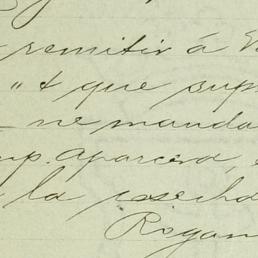 remitir á
" & que sup
me manda
mp. aparcera,
la cosecha
Rogan